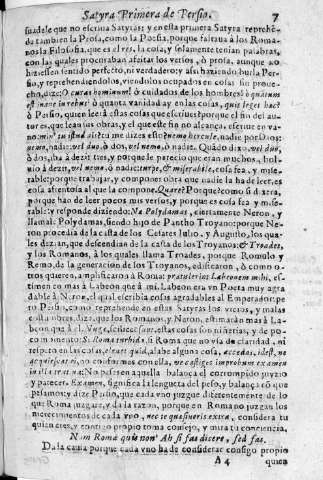 Satyra Primera de Persio. 7
suadele que no escriua Satyras: y en esta primera Satyra reprehē
da tambien la Prosa, como la Poesia, porque faltaua à los Roma
nos la Filosofia, que es el res, la cosa, y solamente tenian palabras,
con las quales procurauan afeitar los versos, ò prosa, aunque no
hiziessen sentido perfecto, ni verdadero: y assi haziendo burla Per
sio, y reprehendiendolos, viendolos ocupados en cosas sin proue
cho, dize: O curas hominum! ò cuidados de los hombres! ò quantum
est inane in rebus! ò quanta vanidad ay en las cosas, quis leget hæc?
ò Persio, quien leerà estas cosas que escriues? porque el fin del au
tor es, que lean sus obras, y el que este fin no alcança, escriue en va-
no. min' tu istud ais? tu me dizes esso? nemo hercule, nadie por Dios:
nemo, nadie: vel duo, ò dos, vel nemo, ò nadie. Quãdo dixo, vel duo,
ò dos, iba à dezir tres, y porque le pareciò que eran muchos, bol-
uiò à dezir, vel nemo, ò nadie: turpe, & miserabile, cosa fea, y mise-
rable: porque trabajar, y componer obra que nadie la ha de leer, es
cosa afrentosa al que la compone. Quare? Porque? como si dixera,
porque han de leer pocos mis versos, y porque es cosa fea y mise-
rable: y responde diziendo: Ne Polydamas, ciertamente Neron, y
llamale Polydamas, siendo hijo de Pantho Troyano: porque Ne-
ron procedia de la casta de los Cesares Iulio, y Augusto, los qua-
les dezian, que descendian de la casta de los Troyanos: & Troades,
y los Romanos, à los quales llama Troades, porque Romulo y
Remo, de la generacion de los Troyanos, edificaron, ò como o-
tros quieren, amplificaron à Roma: prætulerint Labeonem mihi, es-
timen en mas à Labeon que à mi. Labeon era vn Poeta muy agra
dable à Neron, el qual escribia cosas agradables al Emperador: pe
ro Persio, como reprehende en estas Satyras los vicios, y malas
costumbres, dize, que los Romanos, y Neron, estimaràn mas à La-
beon que à el. Nugæ, scilicet sunt, estas cosas son niñerias, y de po-
co momento: Si Roma turbida, si Roma que no vsa de claridad, ni
respeto en las cosas, eleuet quid, alabe alguna cosa, accedas, idest, ne
acquiescas, no conformes con ella, ne castiges improbum examen
in illa trutina: No pesen en aquella balança el corrompido juyzio
y parecer. Examen, significa la lengueta del peso, y balança cõ que
pesamos: y dize Persio, que cada vno juzgue diferentemente de lo
que Roma juzgare, y dà la razon, porque en Roma no juzgan los
merecimientos de cada vno, nec te quæsiueris extra, considera tu
quien eres, y contigo proprio toma consejo, y mira tu conciencia,
Nam Romæ quis non? Ah si fas dicere, sed fas.
Dà la causa porque cada vno ha de considerar consigo propio
A 4 quien